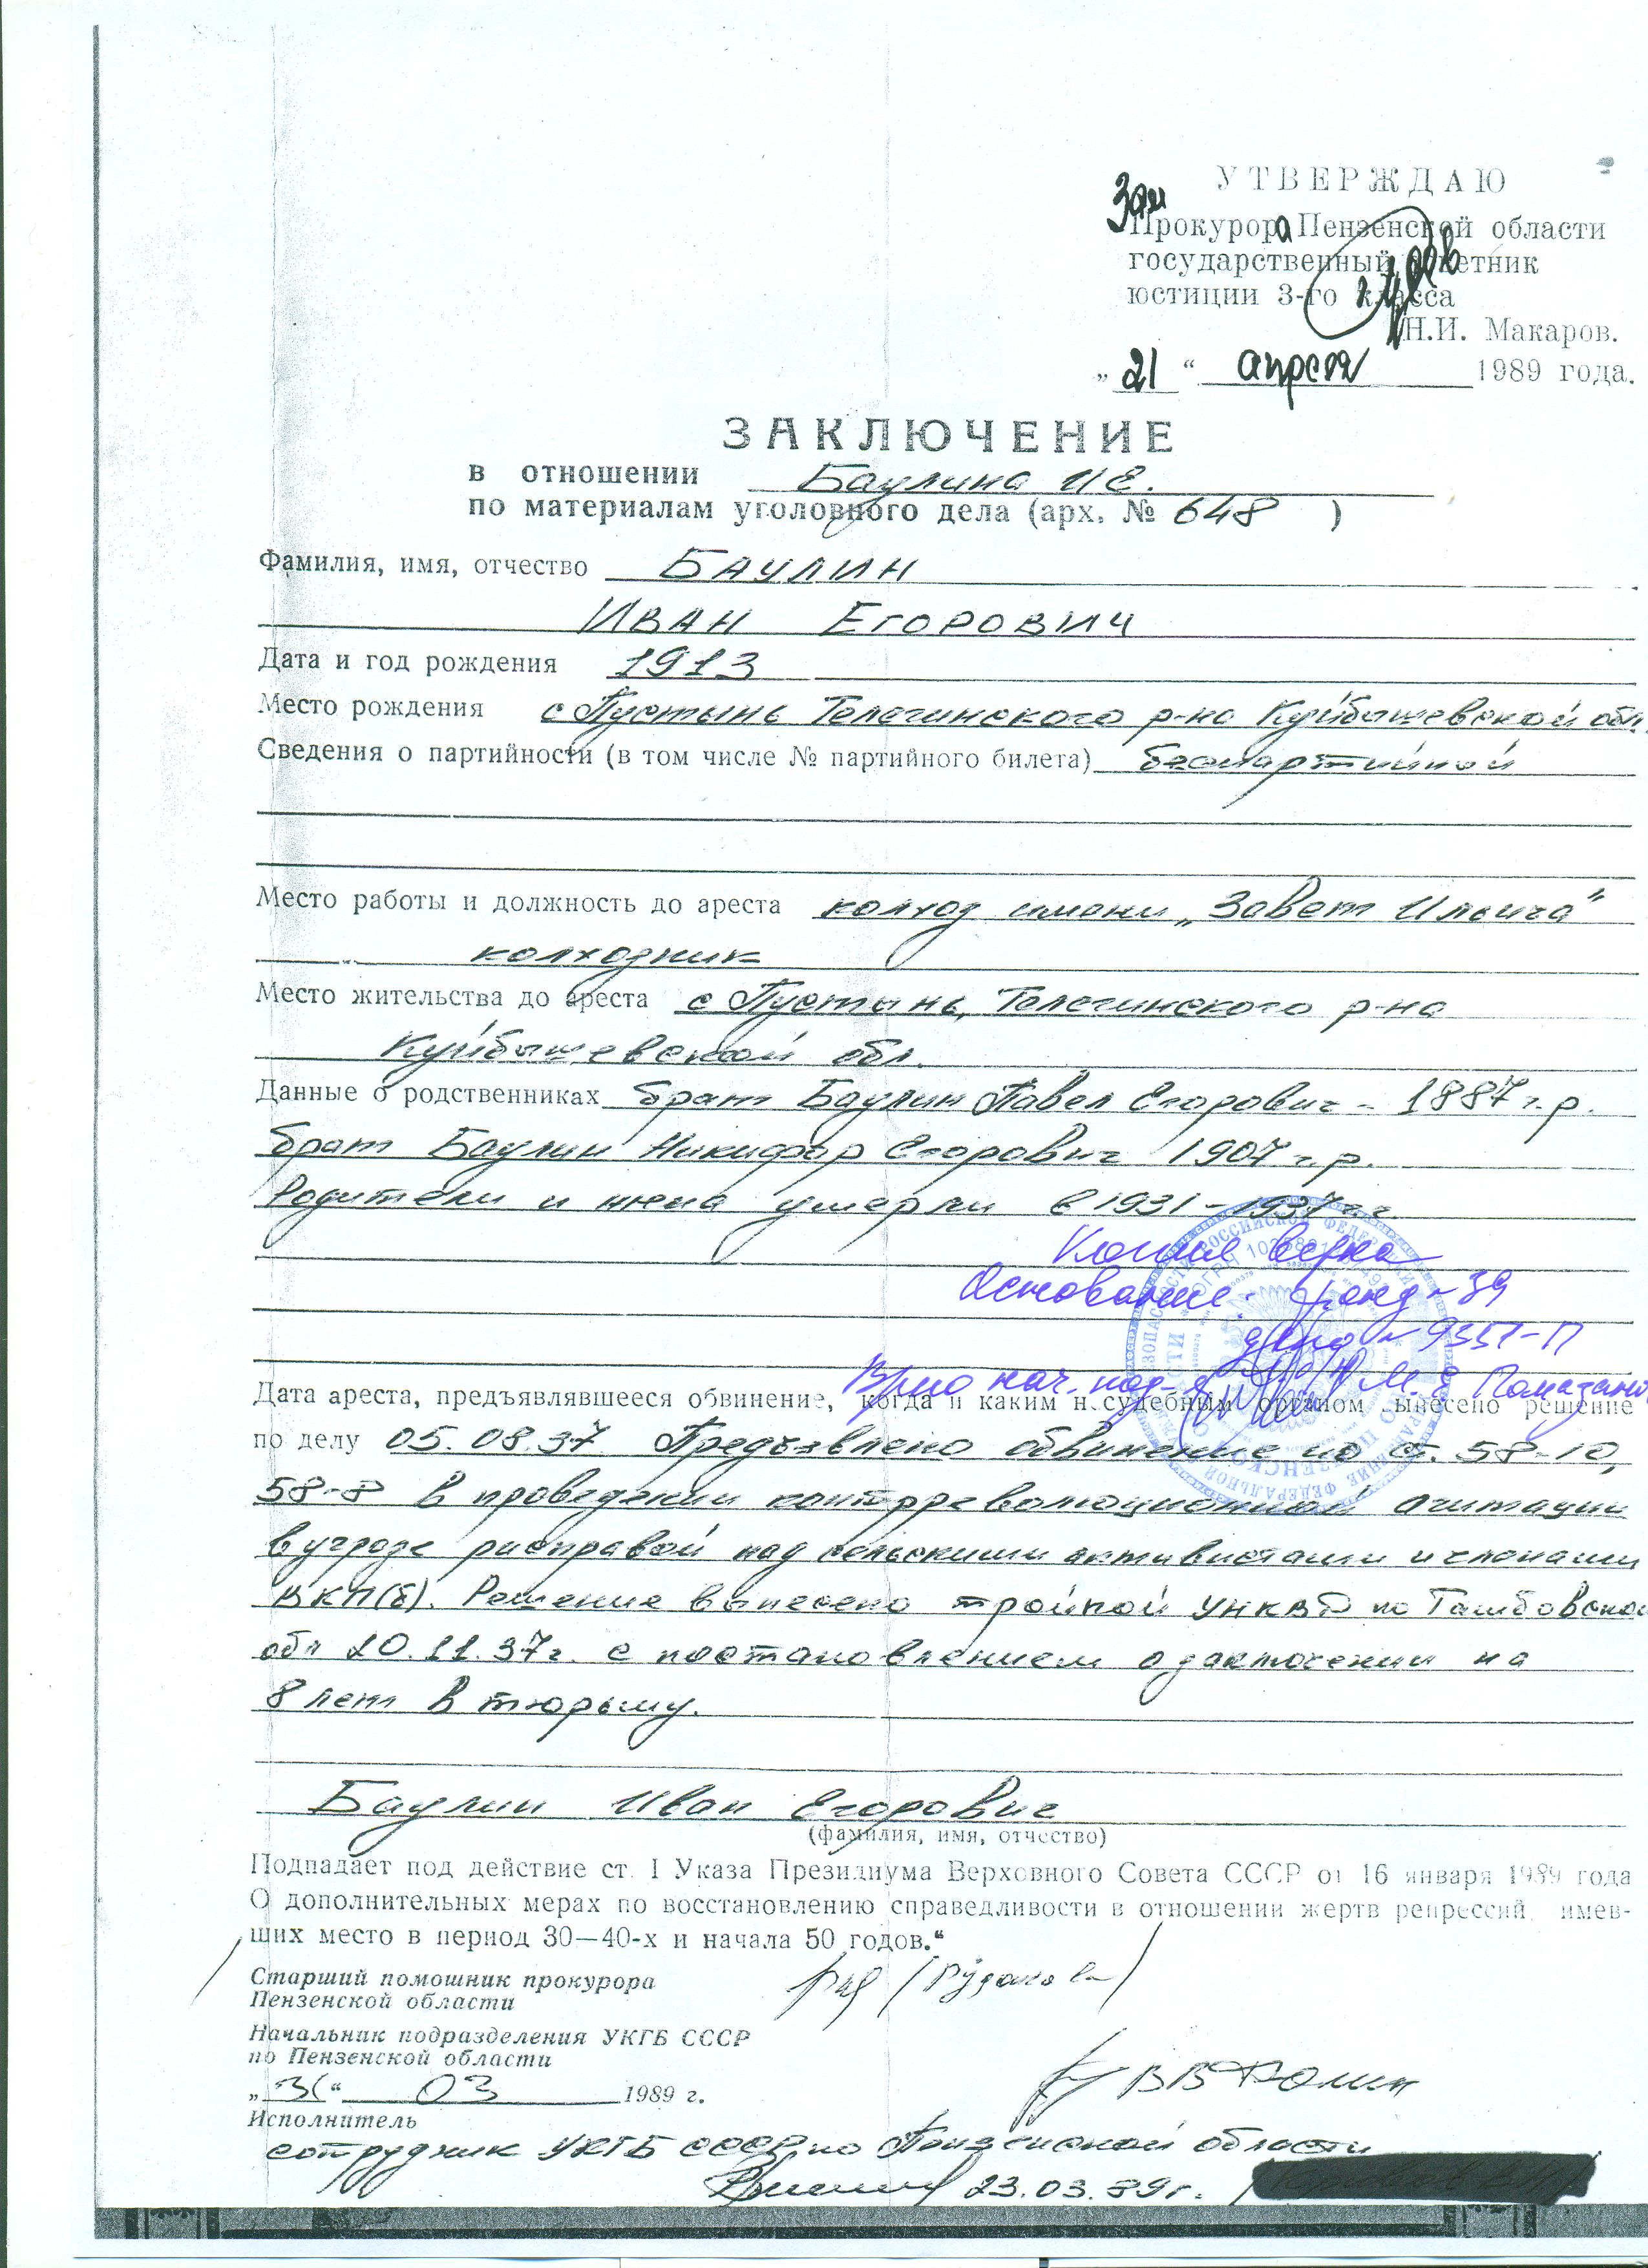 УТВЕРЖДАЮ
Зам Прокурора Пензенской области
государственный советник
юстиции 3-го класса
Н.И. Макаров.
„21“ апреля 1989 года.
ЗАКЛЮЧЕНИЕ
в отношении Баулина И Е.
по материалам уголовного дела (арх. № 648 )
Фамилия, имя, отчество БАУЛИН
ИВАН ЕГОРОВИЧ
Дата и год рождения 1913
Место рождения с Пустынь Телегинского р-на Куйбышевской обл.
Сведения о партийности (в том числе № партийного билета) беспартийный
Место работы и должность до ареста колхоз имени „Завет Ильича“
колхозник
Место жительства до ареста с Пустынь, Телегинского р-на
Куйбышевской обл.
Данные о родственниках брат Баулин Павел Егорович - 1887 г.р.
брат Баулин Никифор Егорович 1907 г.р.
Родители и жена умерли в 1931-1937 гг.
Копия верна
Основание: фонд № 39
дело №
Врио нач. под-я М. Е
Дата ареста, предъявлявшееся обвинение, когда и каким несудебным органом вынесено решение
по делу 05.08.37 Предъявлено обвинение по ст. 58-10,
58-8 в проведении контрреволюционной агитации
в угрозе расправой над сельскими активистами и членами
ВКП(б). Решение вынесено тройкой УНКВД по Тамбовской
обл 20.11.37г. с постановлением о заключении на
8 лет в тюрьму.
Баулин Иван Егорович
(фамилия, имя, отчество)
Подпадает под действие ст. I Указа Президиума Верховного Совета СССР от 16 января 1989 года
О дополнительных мерах по восстановлению справедливости в отношении жертв репрессий, имев-
ших место в период 30—40-х и начала 50 годов.“
Старший помошник прокурора
Пензенской области
Начальник подразделения УКГБ СССР
по Пензенской области
„31“ 03 1989 г.
Исполнитель
сотрудник УКГБ СССР по Пензенской области
23.03.89г.